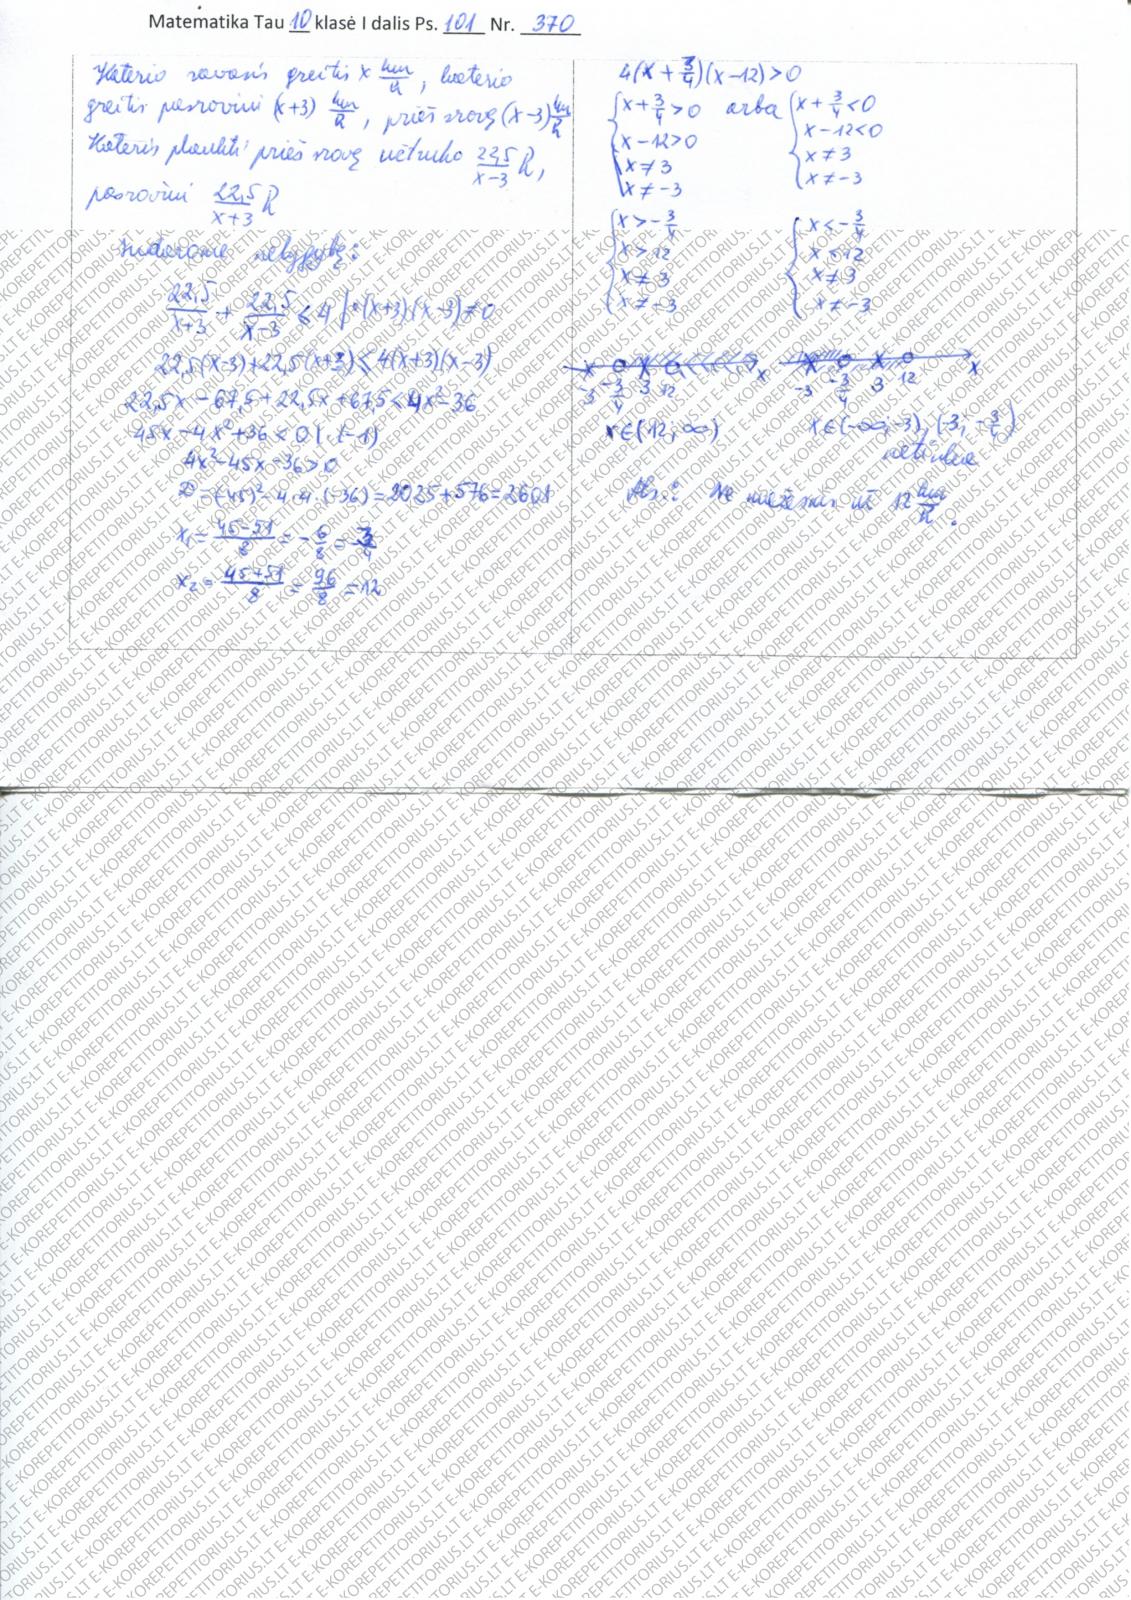 Matematika Tau 10 klasė I dalis Ps. 101 Nr. 370
Katerio savasis greitis x km/h, katerio
greitis pasroviui (x+3) km/h, prieš srovę (x-3) km/h
Kateris plaukti prieš srovę užtruko 22,5/(x-3) h,
pasroviui 22,5/(x+3) h
Sudarome nelygybę:
22,5/(x+3) + 22,5/(x-3) ≤ 4 | ·(x+3)(x-3)≠0
22,5(x-3)+22,5(x+3)≤4(x+3)(x-3)
22,5x-67,5+22,5x+67,5<4x²-36
45x-4x²+36<0 | ·(-1)
4x²-45x-36>0
D=(-45)²-4·4·(-36)=2025+576=2601
x₁=(45-51)/8=-6/8=-3/4
x₂=(45+51)/8=96/8=12
4(x+3/4)(x-12)>0
x+3/4>0 arba x+3/4<0
x-12>0 x-12<0
x≠3 x≠3
x≠-3 x≠-3
x>-3/4 x<-3/4
x>12 x<12
x≠3 x≠3
x≠-3 x≠-3
-3 -3/4 3 12 x -3 -3/4 3 12 x
x∈(12;∞) x∈(-∞;-3),(-3;-3/4)
netinka
Ats.: Ne mažesniu už 12 km/h.
E-KOREPETITORIUS.LT